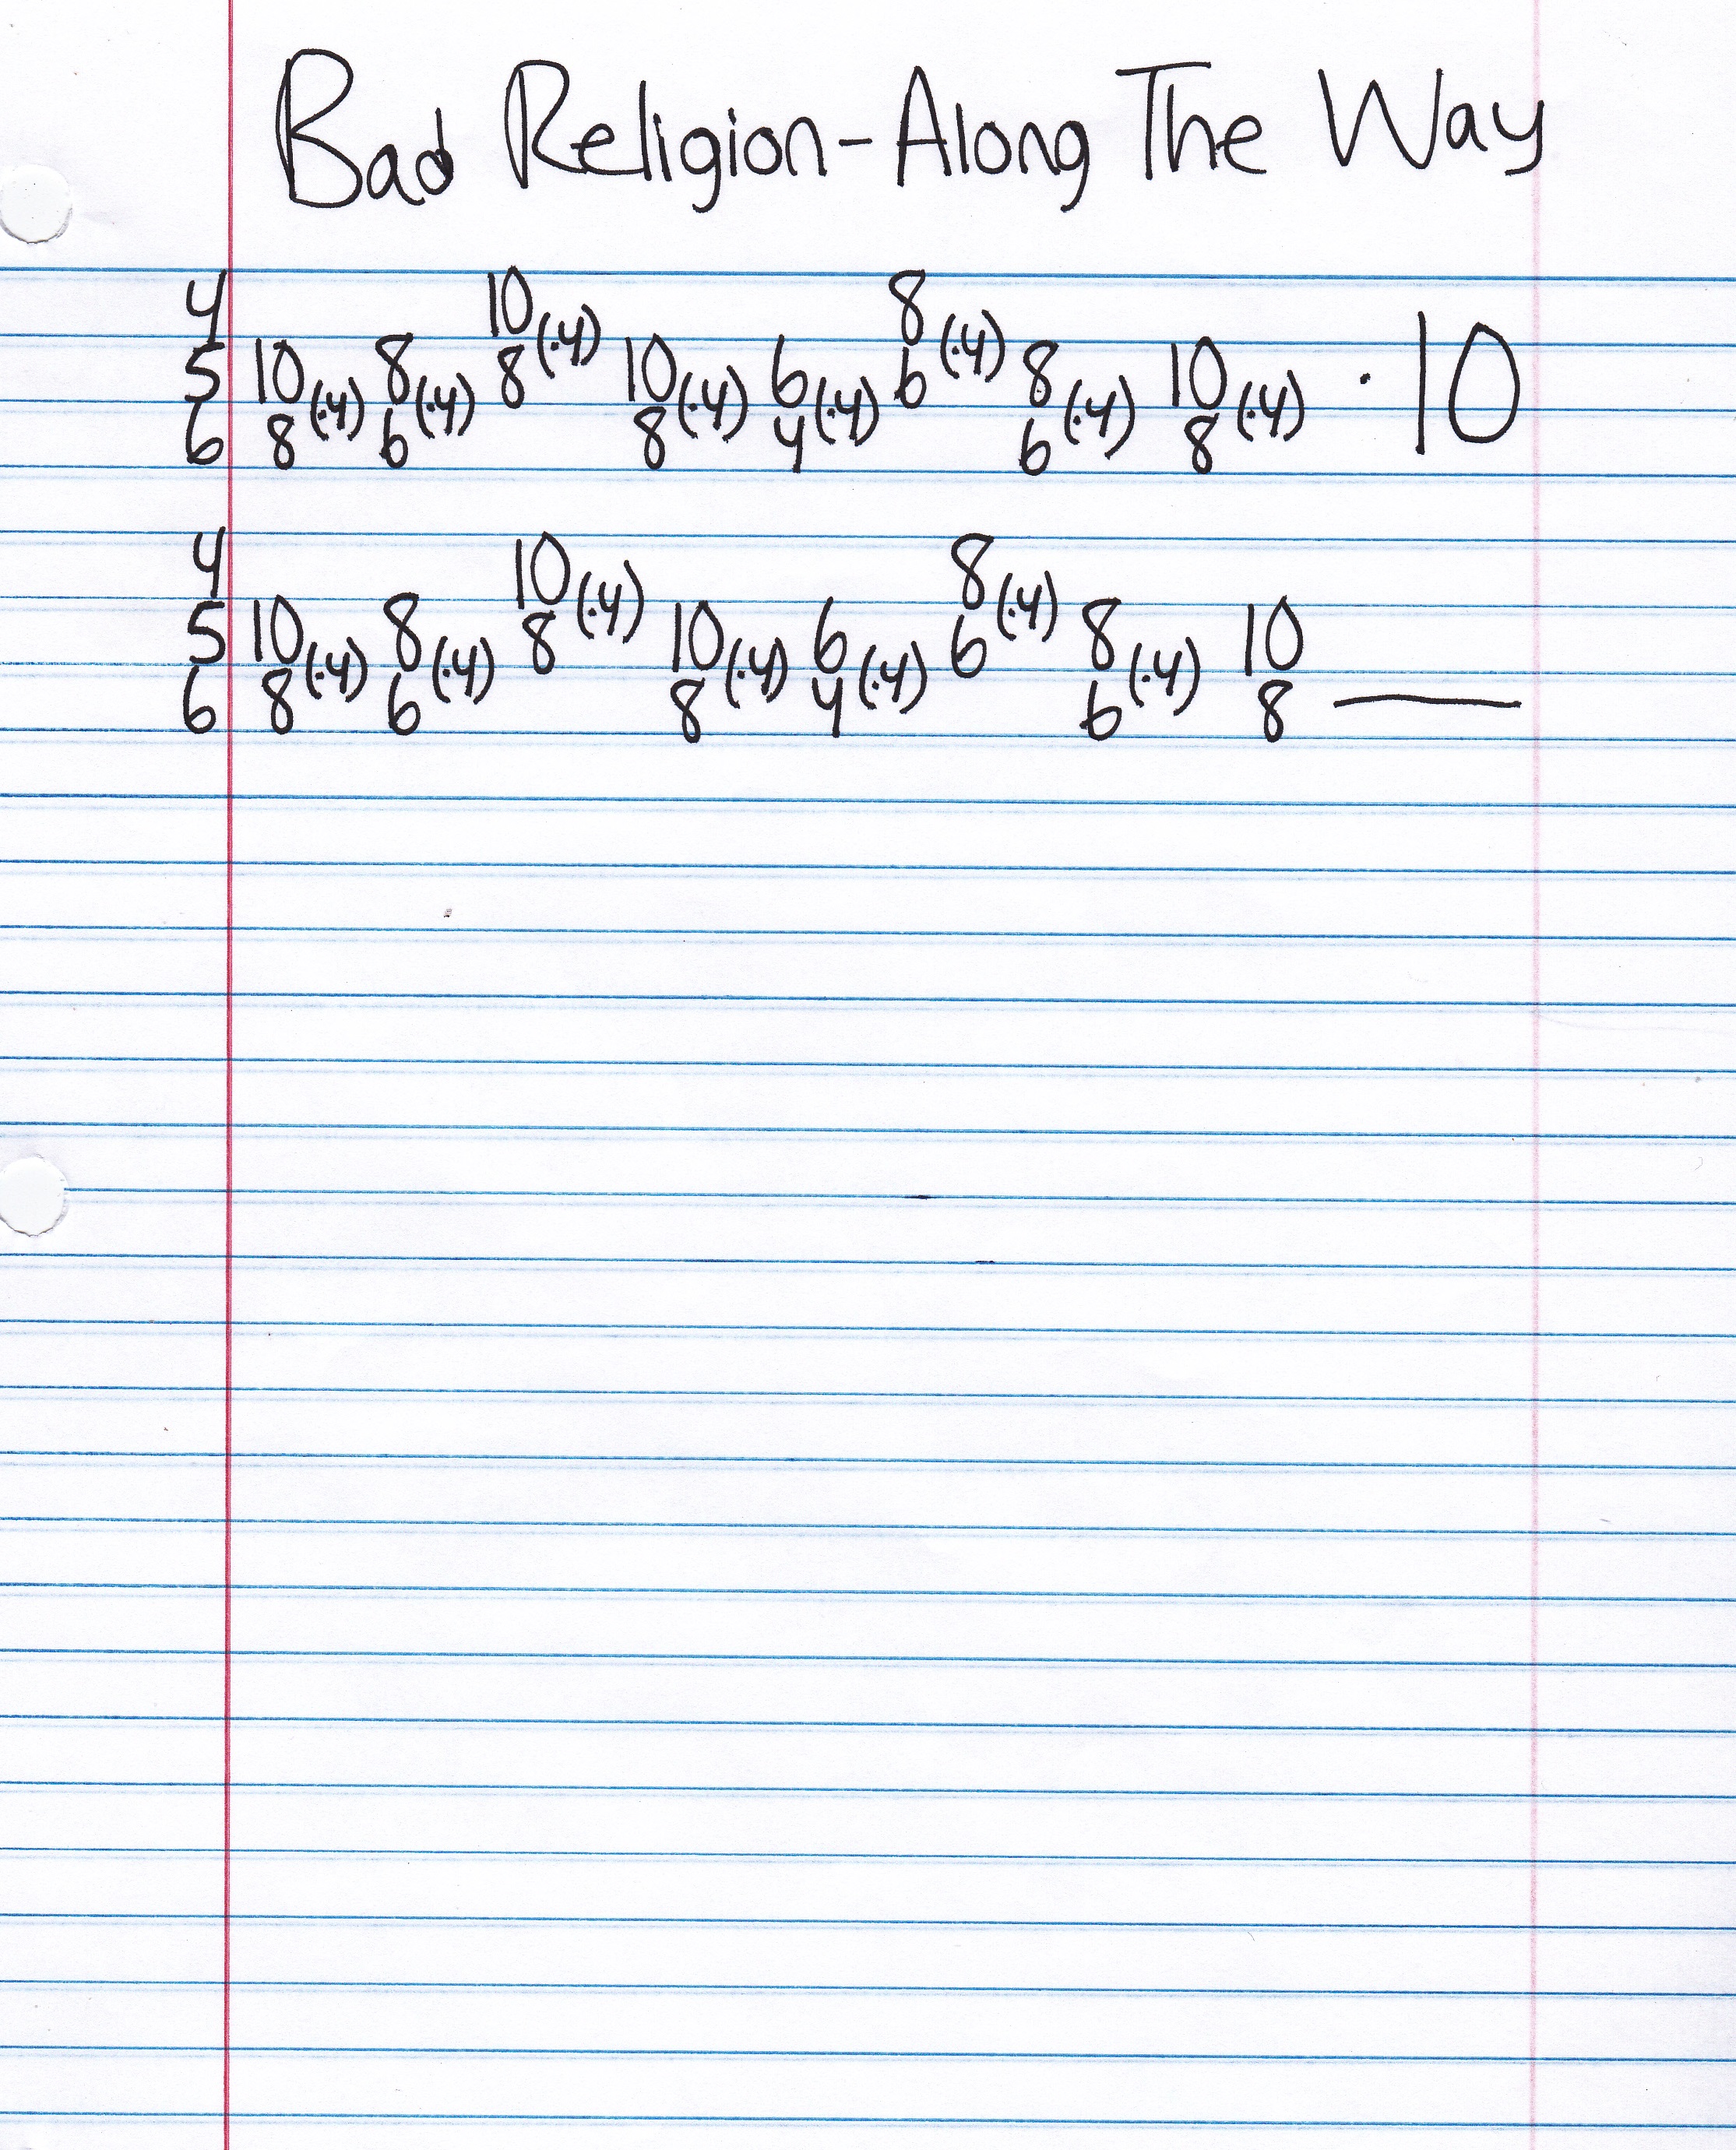 Bad Religion-Along The Way
4 10(·4) 8(·4)
5 10(·4) 8(·4) 8 10(·4) 6(·4) 6 8(·4) 10(·4) ·10
6 8 6 8 4 6 8
4 10(·4) 8(·4)
5 10(·4) 8(·4) 8 10(·4) 6(·4) 6 8(·4) 10
6 8 6 8 4 6 8 —